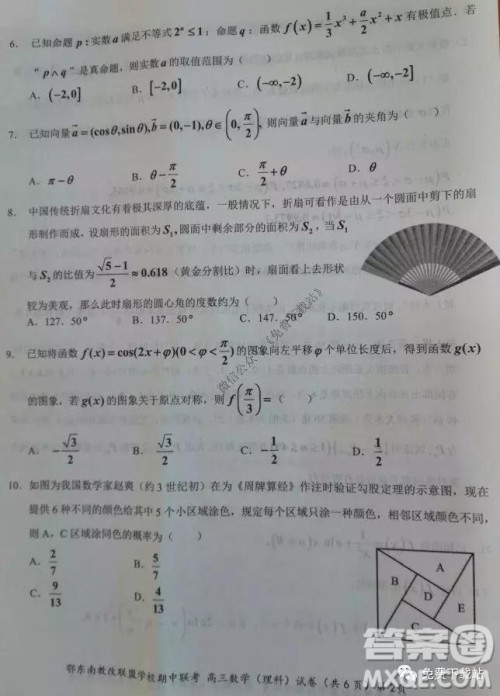 6. 已知命题 p：实数 a 满足不等式 2ᵃ ≤ 1；命题 q：函数 f(x) = 1/3 x³ + a/2 x² + x 有极值点．若
“p∧q”是真命题，则实数 a 的取值范围为（　）
A. (-2,0]　B. [-2,0]　C. (-∞,-2)　D. (-∞,-2]
7. 已知向量 a⃗ = (cosθ, sinθ), b⃗ = (0,-1), θ∈(0, π/2)，则向量 a⃗ 与向量 b⃗ 的夹角为（　）
A. π-θ　B. θ-π/2　C. π/2+θ　D. θ
8. 中国传统折扇文化有着极其深厚的底蕴，一般情况下，折扇可看作是由从一个圆面中剪下的扇
形制作而成，设扇形的面积为 S₁,圆面中剩余部分的面积为 S₂，当 S₁
与 S₂ 的比值为 (√5-1)/2 ≈ 0.618（黄金分割比）时，扇面看上去形状
较为美观，那么此时扇形的圆心角的度数约为（　）
A. 127.50°　B. 137.50°　C. 147.50°　D. 150.50°
9. 已知将函数 f(x) = cos(2x+φ)(0<φ<π/2) 的图象向左平移 φ 个单位长度后，得到函数 g(x)
的图象，若 g(x) 的图象关于原点对称，则 f(π/3) =（　）
A. -√3/2　B. √3/2　C. -1/2　D. 1/2
10. 如图为我国数学家赵爽（约 3 世纪初）在为《周髀算经》作注时验证勾股定理的示意图，现在
提供 6 种不同的颜色给其中 5 个小区域涂色，规定每个区域只涂一种颜色，相邻区域颜色不同，
则 A，C 区域涂同色的概率为（　）
A. 2/7　B. 5/7
C. 9/13　D. 4/13
A
B
D
C
E
鄂东南教改联盟学校期中联考 高三数学（理科）试卷（共 6 页）
免费下载站